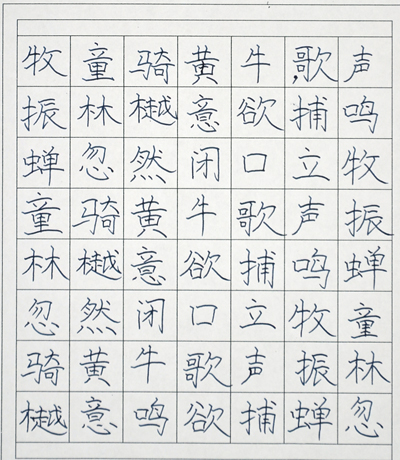 牧童骑黄牛歌声
振林樾意欲捕鸣
蝉忽然闭口立牧
童骑黄牛歌声振
林樾意欲捕鸣蝉
忽然闭口立牧童
骑黄牛歌声振林
樾意鸣欲捕蝉忽